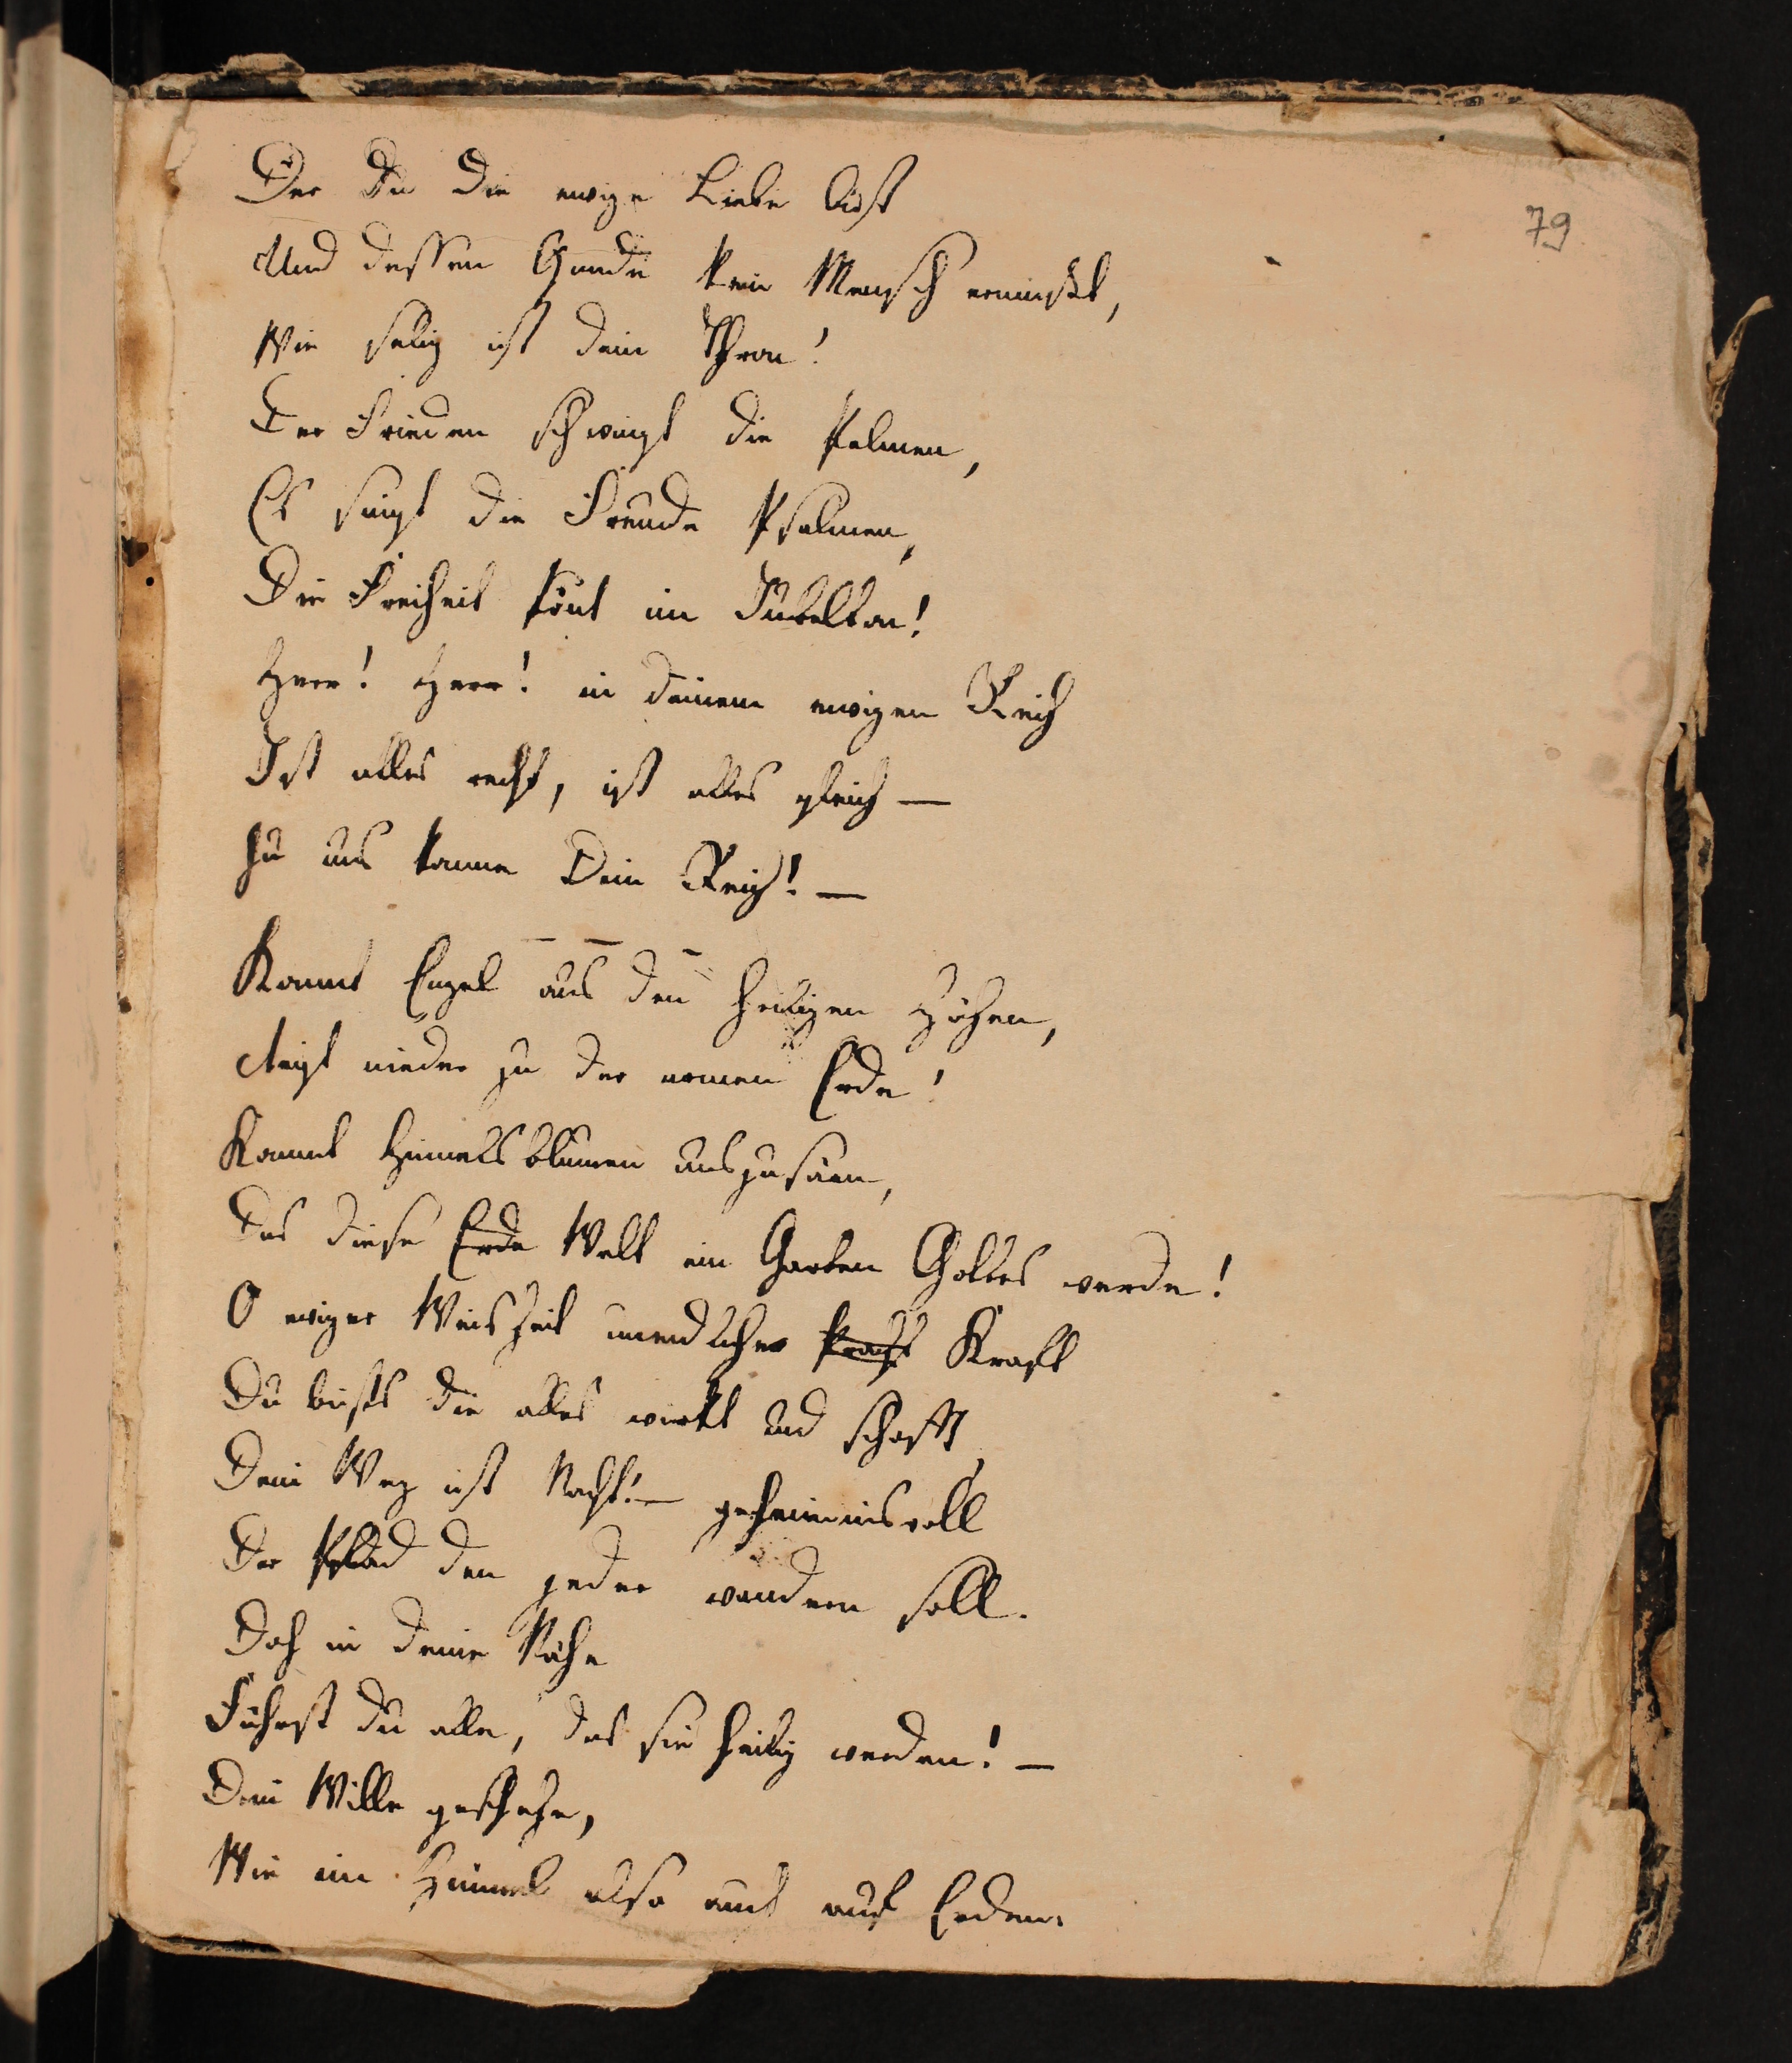 79
Der Du Die ewige Liebe bist
Und dessen Gnade kein Mensch ermißt,
Wie selig ist dein Thron!
Der Frieden schwingt die Palmen,
Es singt die Freude Psalmen,
Die Freiheit tönt im Jubelton!
Herr! Herr! in deinem ewigen Reich
Ist alles recht, ist alles gleich —
Zu uns komme Dein Reich! —
Kommt Engel aus den heiligen Höhen,
steigt nieder zu der armen Erde!
Kommt Himmelsblumen auszusäen,
Das diese Erde Welt ein Garten Gottes werde!
O ewiger Weisheit unendlicher Kraft Kraft
Du bists die alles wirkt und schafft,
Dein Weg ist Nacht! — geheimnisvoll
Der Pfad den jeder wandern soll.
Doch in deine Nähe
Führst du alle, das sie heilig werden! —
Dein Wille geschehe,
Wie im Himmel also auch auf Erden.